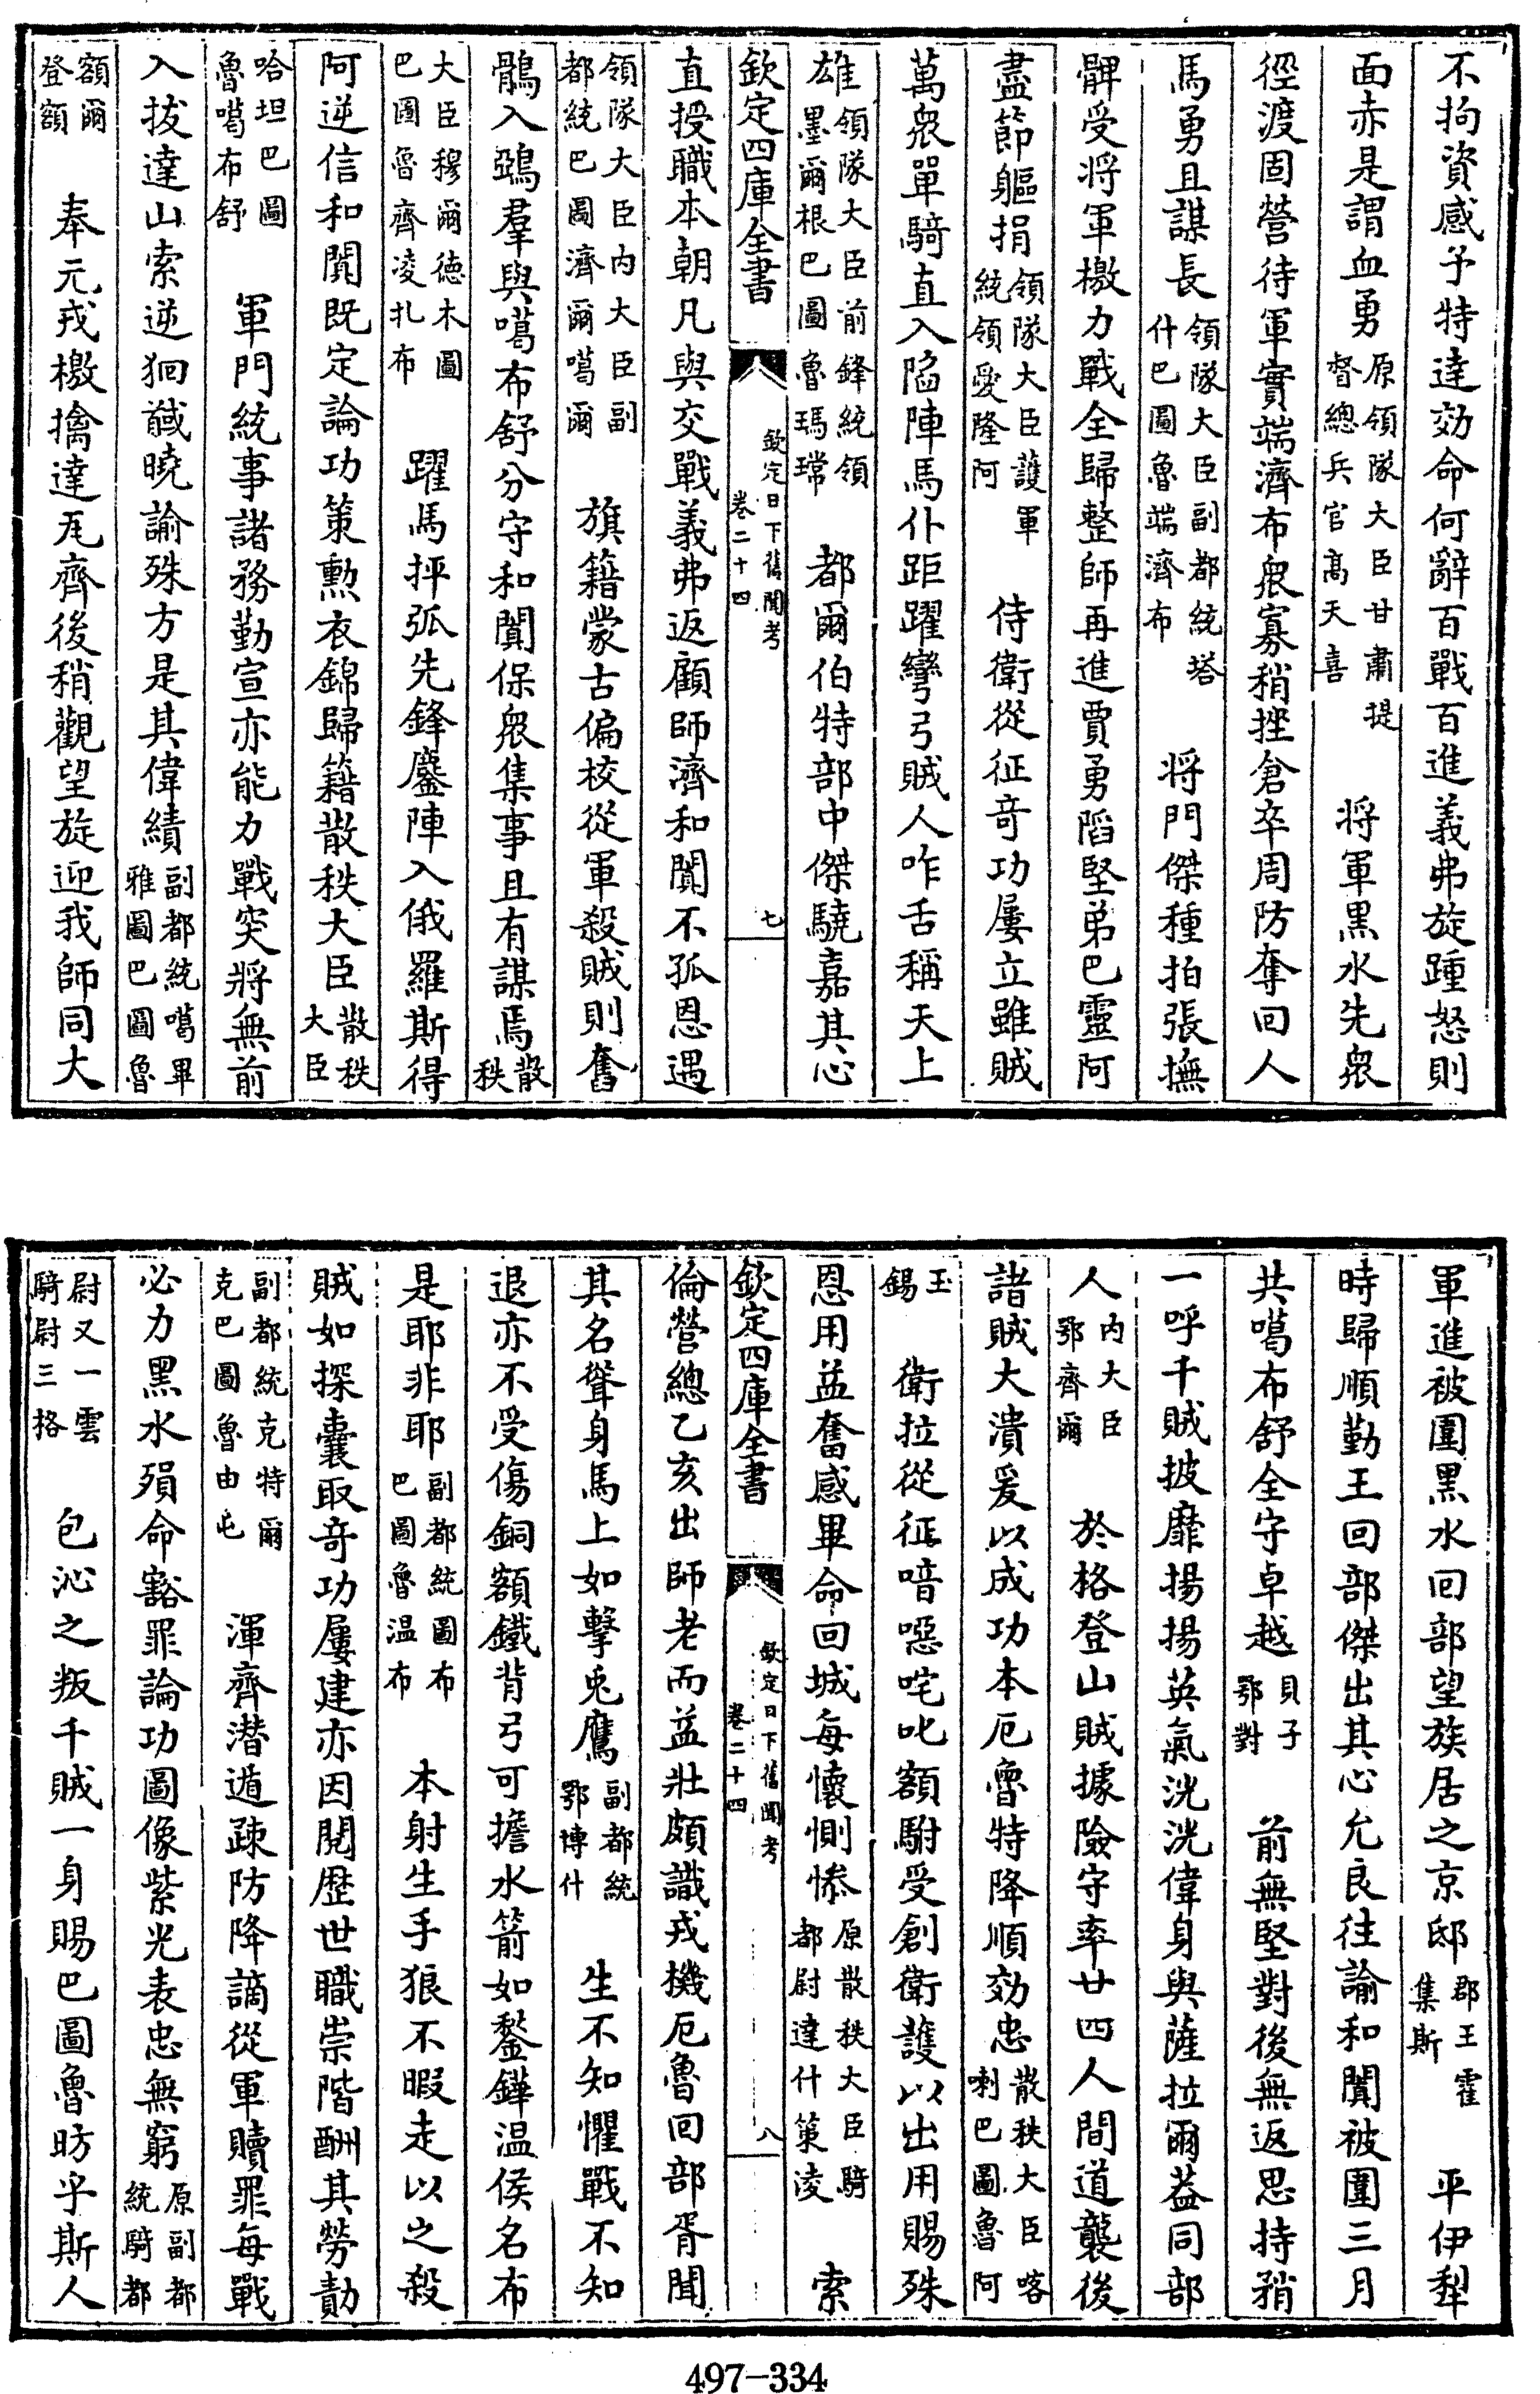 不拘資感予特達効命何辭百戰百進義弗旋踵怒則
面赤是謂血勇原領隊大臣甘肅提督總兵官高天喜 將軍黒水先衆
徑渡固營待軍實端濟布衆寡稍挫倉卒周防奪回人
馬勇且謀長領隊大臣副都統塔什巴圖魯端濟布 將門傑種拍張撫
髀受將軍檄力戰全歸整師再進賈勇蹈堅弟巴靈阿
盡節軀捐領隊大臣護軍統領愛隆阿 侍衛從征竒功屢立雖賊
萬衆單騎直入䧟陣馬仆距躍彎弓賊人咋舌稱天上
雄領隊大臣前鋒統領墨爾根巴圖魯瑪瑺 都爾伯特部中傑驍嘉其心
欽定四庫全書 欽定日下舊聞考 卷二十四 七
直授職本朝凡與交戰義弗返顧師濟和闐不孤恩遇
領隊大臣内大臣副都統巴圖濟爾噶爾 旗籍蒙古偏校從軍殺賊則奮
鶻入鵶羣與噶布舒分守和闐保衆集事且有謀焉散秩
大臣穆爾徳木圖巴圖魯齊凌扎布 躍馬抨弧先鋒鏖陣入俄羅斯得
阿逆信和闐既定論功策勲衣錦歸籍散秩大臣散秩大臣
哈坦巴圖魯噶布舒 軍門統事諸務勤宣亦能力戰突將無前
入拔達山索逆狥馘曉諭殊方是其偉績副都統噶畢雅圖巴圖魯
額爾登額 奉元戎檄擒達瓦齊後稍觀望旋迎我師同大
軍進被圍黒水回部望族居之京邸郡王霍集斯 平伊犁
時歸順勤王回部傑出其心允良往諭和闐被圍三月
共噶布舒全守卓越貝子鄂對 前無堅對後無返思持矟
一呼千賊披靡揚揚英氣洸洸偉身與薩拉爾葢同部
人内大臣鄂齊爾 於格登山賊據險守率廿四人間道襲後
諸賊大潰爰以成功本厄魯特降順効忠散秩大臣喀喇巴圖魯阿
玉錫 衛拉從征喑噁咤叱額駙受創衛護以出用賜殊
恩用益奮感畢命回城每懷惻慘原散秩大臣騎都尉達什策凌 索
欽定四庫全書 欽定日下舊聞考 卷二十四 八
倫營總乙亥出師老而益壯頗識戎機厄魯回部胥聞
其名聳身馬上如擊兎鷹副都統鄂博什 生不知懼戰不知
退亦不受傷銅額鐵背弓可擔水箭如鏊鏵温侯名布
是耶非耶副都統圖布巴圖魯温布 本射生手狼不暇走以之殺
賊如探囊取竒功屢建亦因閱歴世職崇階酬其勞勣
副都統克特爾克巴圖魯由屯 渾齊潜遁疎防降謫從軍贖罪每戰
必力黒水殞命豁罪論功圖像紫光表忠無窮原副都統騎都
尉又一雲騎尉三格 包沁之叛千賊一身賜巴圖魯昉乎斯人
497-334